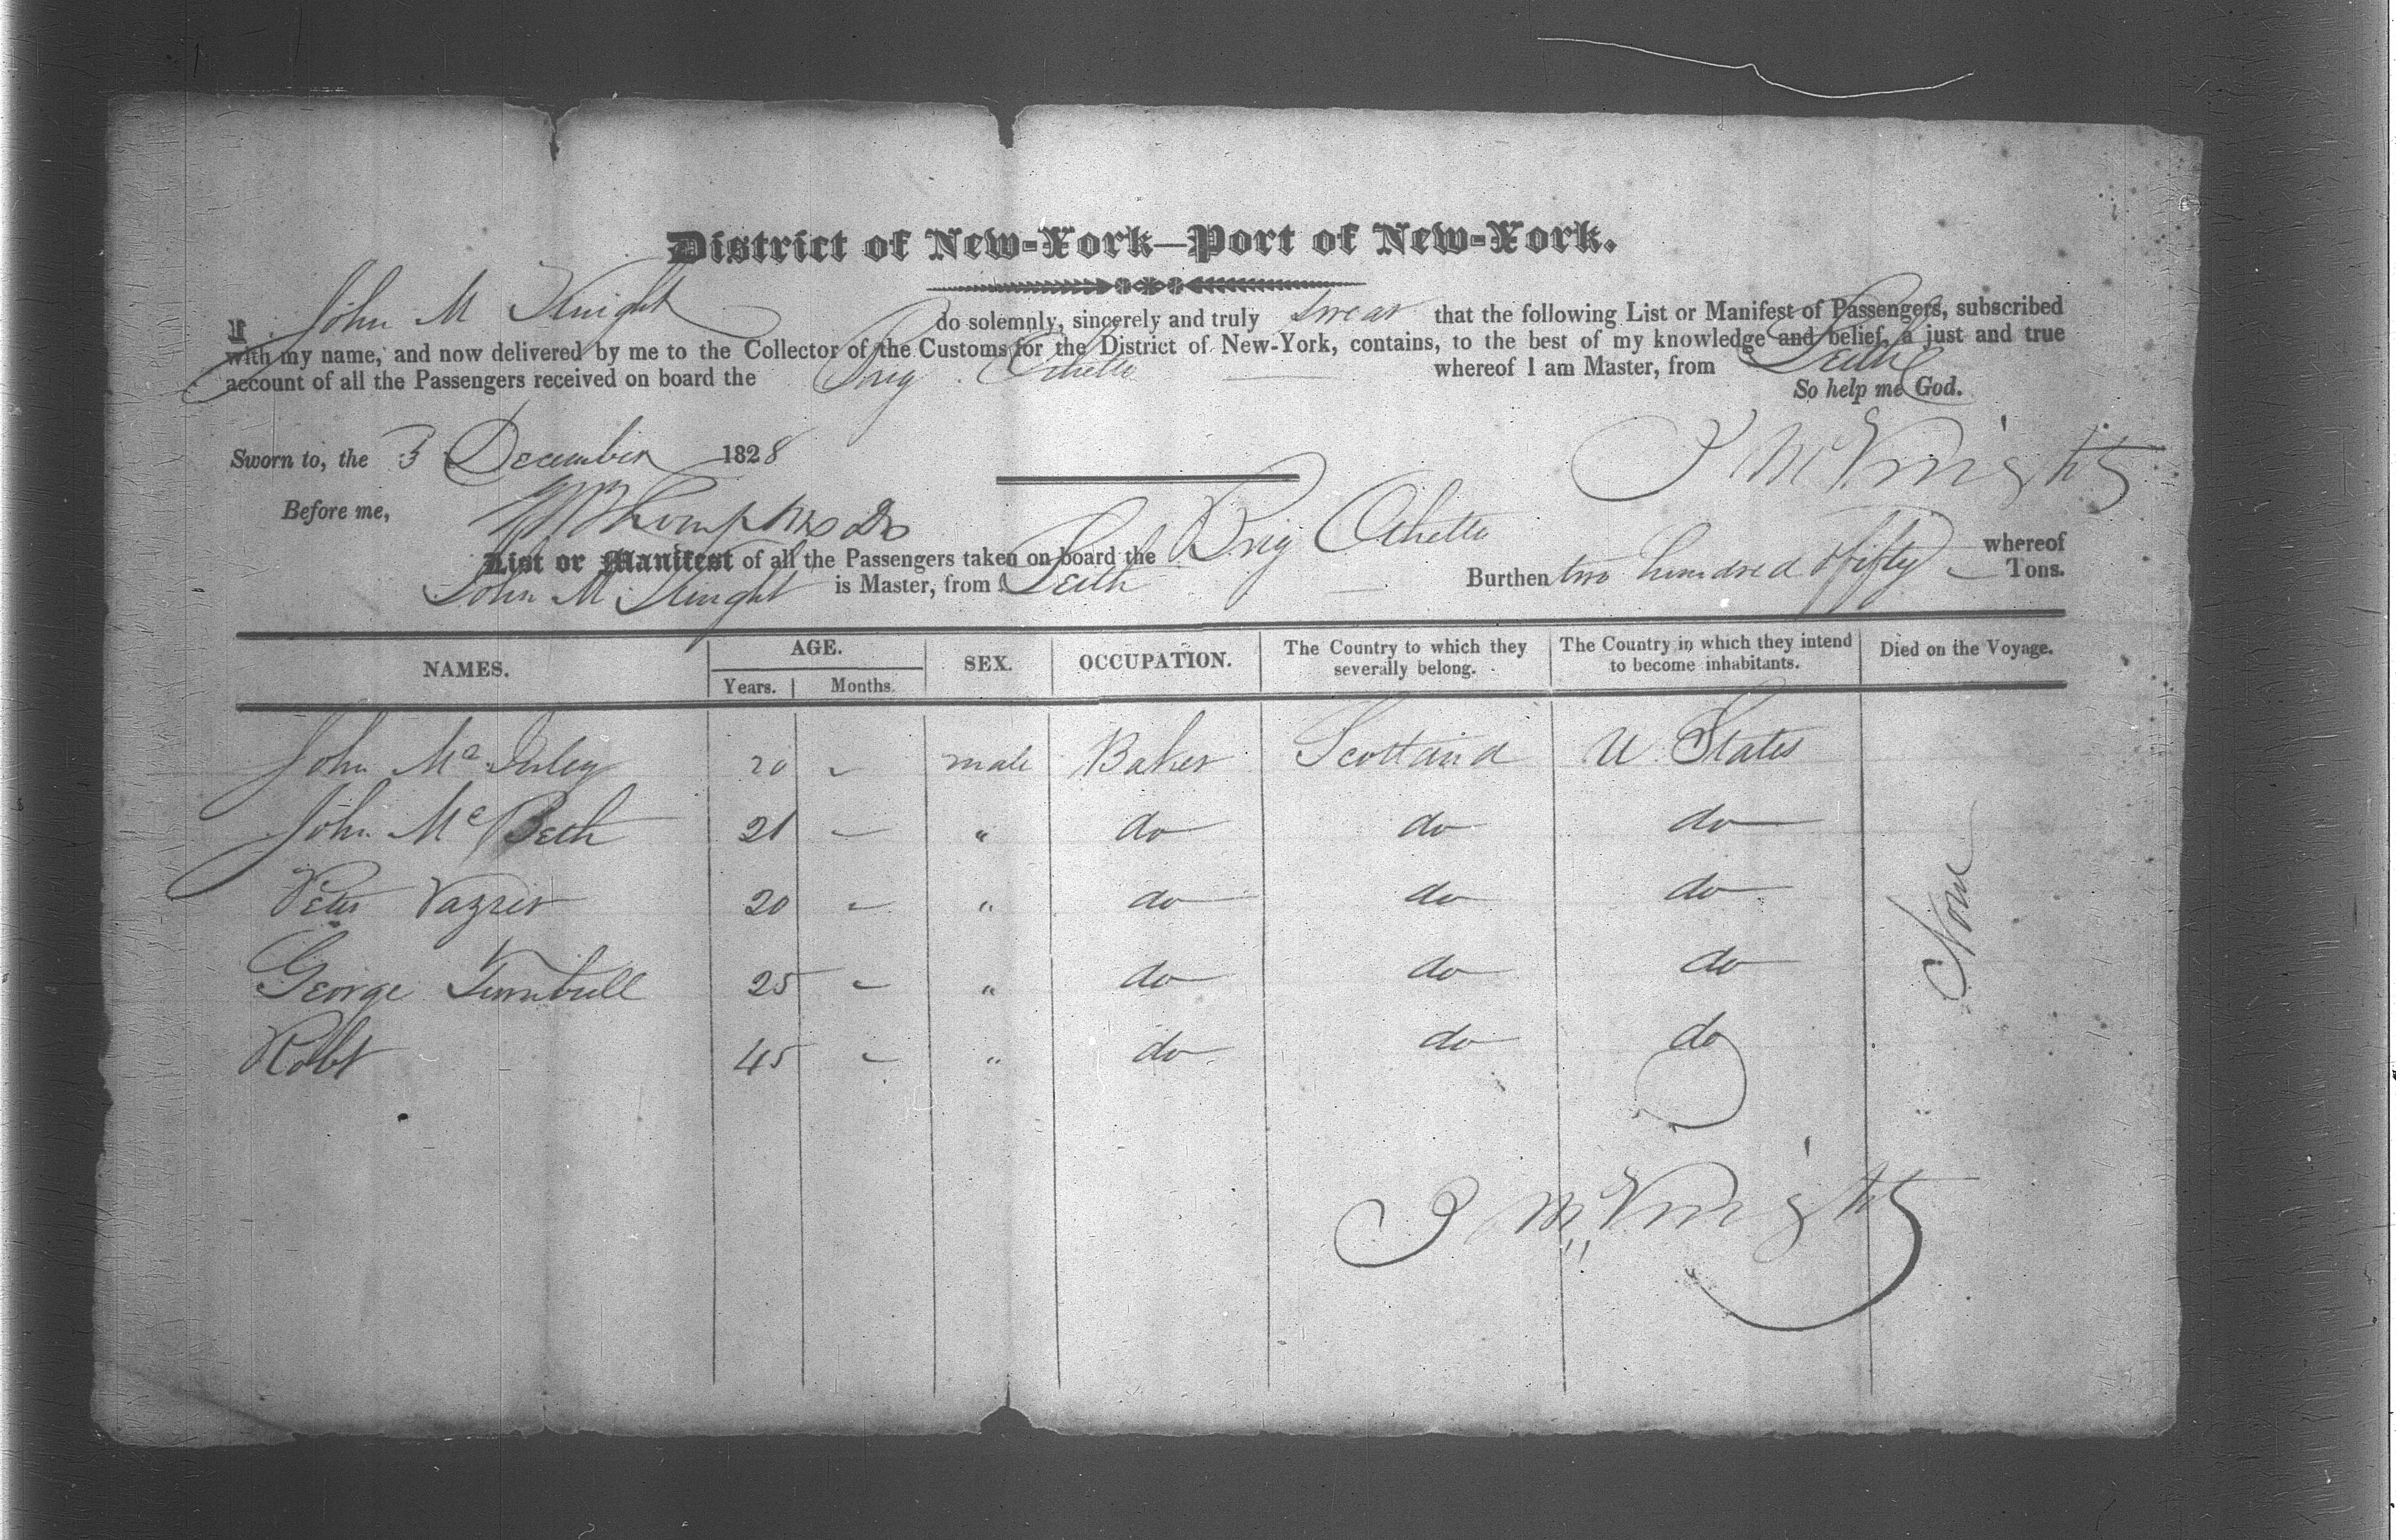 District of New-York—Port of New-York.
I, John McKnight do solemnly, sincerely and truly swear that the following List or Manifest of Passengers, subscribed
with my name, and now delivered by me to the Collector of the Customs for the District of New-York, contains, to the best of my knowledge and belief, a just and true
account of all the Passengers received on board the Brig whereof I am Master, from Leith
So help me God.
Sworn to, the 3 December 1828
J McKnight
Before me,
List or Manifest of all the Passengers taken on board the Brig whereof
John McKnight is Master, from Leith Burthen two hundred & fifty Tons.
NAMES. AGE. SEX. OCCUPATION. The Country to which they severally belong. The Country in which they intend to become inhabitants. Died on the Voyage.
Years. Months.
John 20 - male Baker Scotland U. States
John McBeth 21 - " do do do
Peter 20 - " do do do None
George Turnbull 25 - " do do do
Robt 45 - " do do do
J McKnight